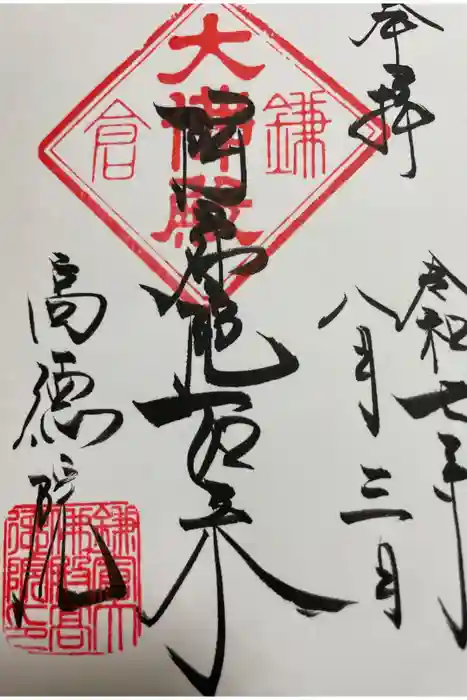 奉拝
令和七年
八月三日
大佛殿
鎌倉
阿弥陀如来
高徳院
鎌倉大
佛殿高
徳院印